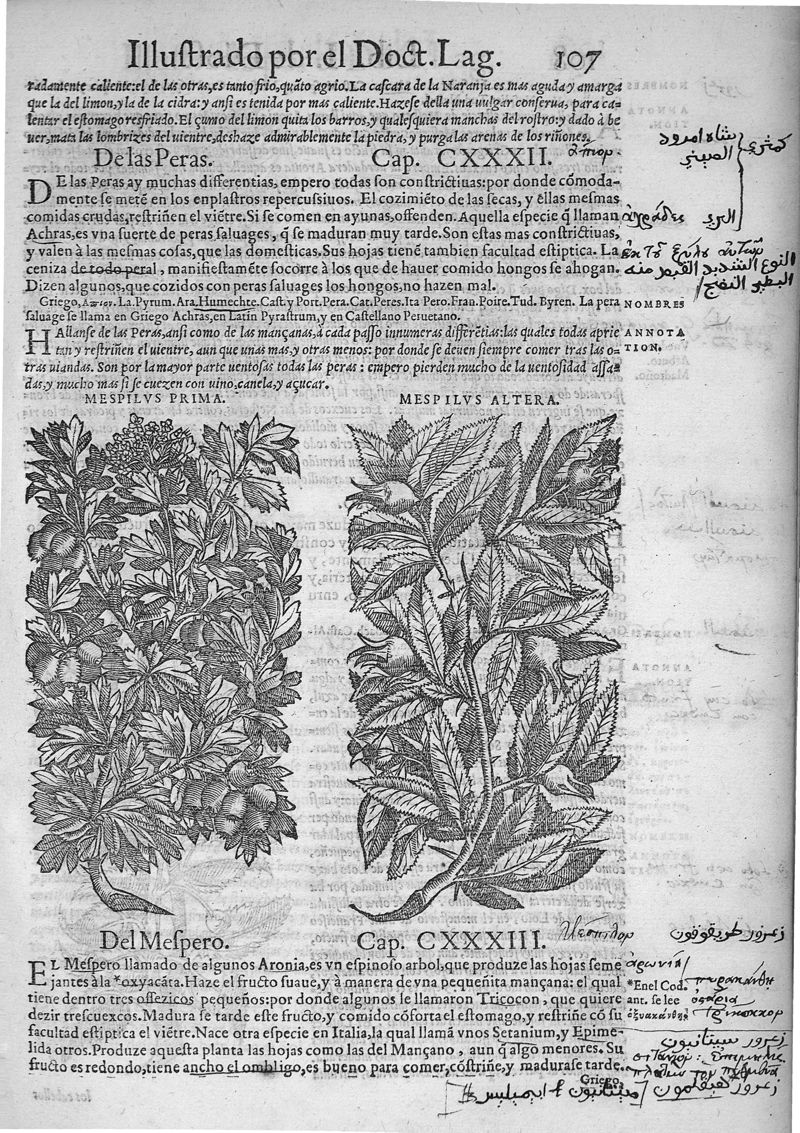 Illuſtrado por el Doct. Lag. 107
radamente caliente: el de las otras, es tanto frio, quãto agrio. La caſcara de la Naranja es mas aguda y amarga
que la del limon, y la de la cidra: y anſi es tenida por mas caliente. Hazeſe della una uulgar conſerua, para ca-
lentar el eſtomago resfriado. El çumo del limon quita los barros, y qualeſquiera manchas del roſtro: y dado à be
uer, mata las lombrizes del uientre, deshaze admirablemente la piedra, y purga las arenas de los riñones.
De las Peras. Cap. CXXXII.
ἄπιον.
DE las Peras ay muchas differentias, empero todas ſon conſtrictiuas: por donde cõmoda-
mente ſe metẽ en los enplaſtros repercuſsiuos. El cozimiẽto de las ſecas, y ẽllas meſmas
comidas crudas, reſtriñen el viẽtre. Si ſe comen en ayunas, offenden. Aquella eſpecie q̃ llaman
Achras, es vna ſuerte de peras ſaluages, q̃ ſe maduran muy tarde. Son eſtas mas conſtrictiuas,
y valen à las meſmas coſas, que las domeſticas. Sus hojas tienẽ tambien facultad eſtiptica. La
ceniza de todo peral, manifieſtamẽte ſocorre à los que de hauer comido hongos ſe ahogan.
Dizen algunos, que cozidos con peras ſaluages los hongos, no hazen mal.
كمثرى
شاه امرود
الصيني
ἀχράδες
البري
ἐκ τοῦ ξύλου αὐτῶν
النوع الشديد القبض منه
البطي النضج
Griego, Απιον. La. Pyrum. Ara. Humechte. Caſt. y Port. Pera. Cat. Peres. Ita Pero. Fran. Poire. Tud. Byren. La pera
ſaluage ſe llama en Griego Achras, en Latin Pyraſtrum, y en Caſtellano Peruetano.
NOMBRES
HAllanſe de las Peras, anſi como de las mançanas, à cada paſſo innumeras differẽtias: las quales todas aprie
tan y reſtriñen el uientre, aun que unas mas, y otras menos: por donde ſe deuen ſiempre comer tras las o-
tras uiandas. Son por la mayor parte uentoſas todas las peras: empero pierden mucho de la uentoſidad aſſa-
das, y mucho mas ſi ſe cuezen con uino, canela, y açucar.
ANNOTA
TION.
MESPILVS PRIMA. MESPILVS ALTERA.
Del Meſpero. Cap. CXXXIII.
Μέσπιλον
زعرور
EL Meſpero llamado de algunos Aronia, es vn eſpinoſo arbol, que produze las hojas ſeme
jantes à la *oxyacáta. Haze el fructo ſuaue, y à manera de vna pequeñita mançana: el qual
tiene dentro tres oſſezicos pequeños: por donde algunos le llamaron Tricocon, que quiere
dezir treſcuexcos. Madura ſe tarde eſte fructo, y comido cõforta el eſtomago, y reſtriñe cõ ſu
facultad eſtiptica el viẽtre. Nace otra eſpecie en Italia, la qual llamã vnos Setanium, y Epime-
lida otros. Produze aqueſta planta las hojas como las del Mançano, aun q̃ algo menores. Su
fructo es redondo, tiene ancho el ombligo, es bueno para comer, cõſtriñe, y maduraſe tarde.
Griego,
ἀρωνία
*Enel Cod.
ant. ſe lee
ὀξυακάνθῃ
πυρακάνθῃ
τρίκοκκον
زعرور
زعرور